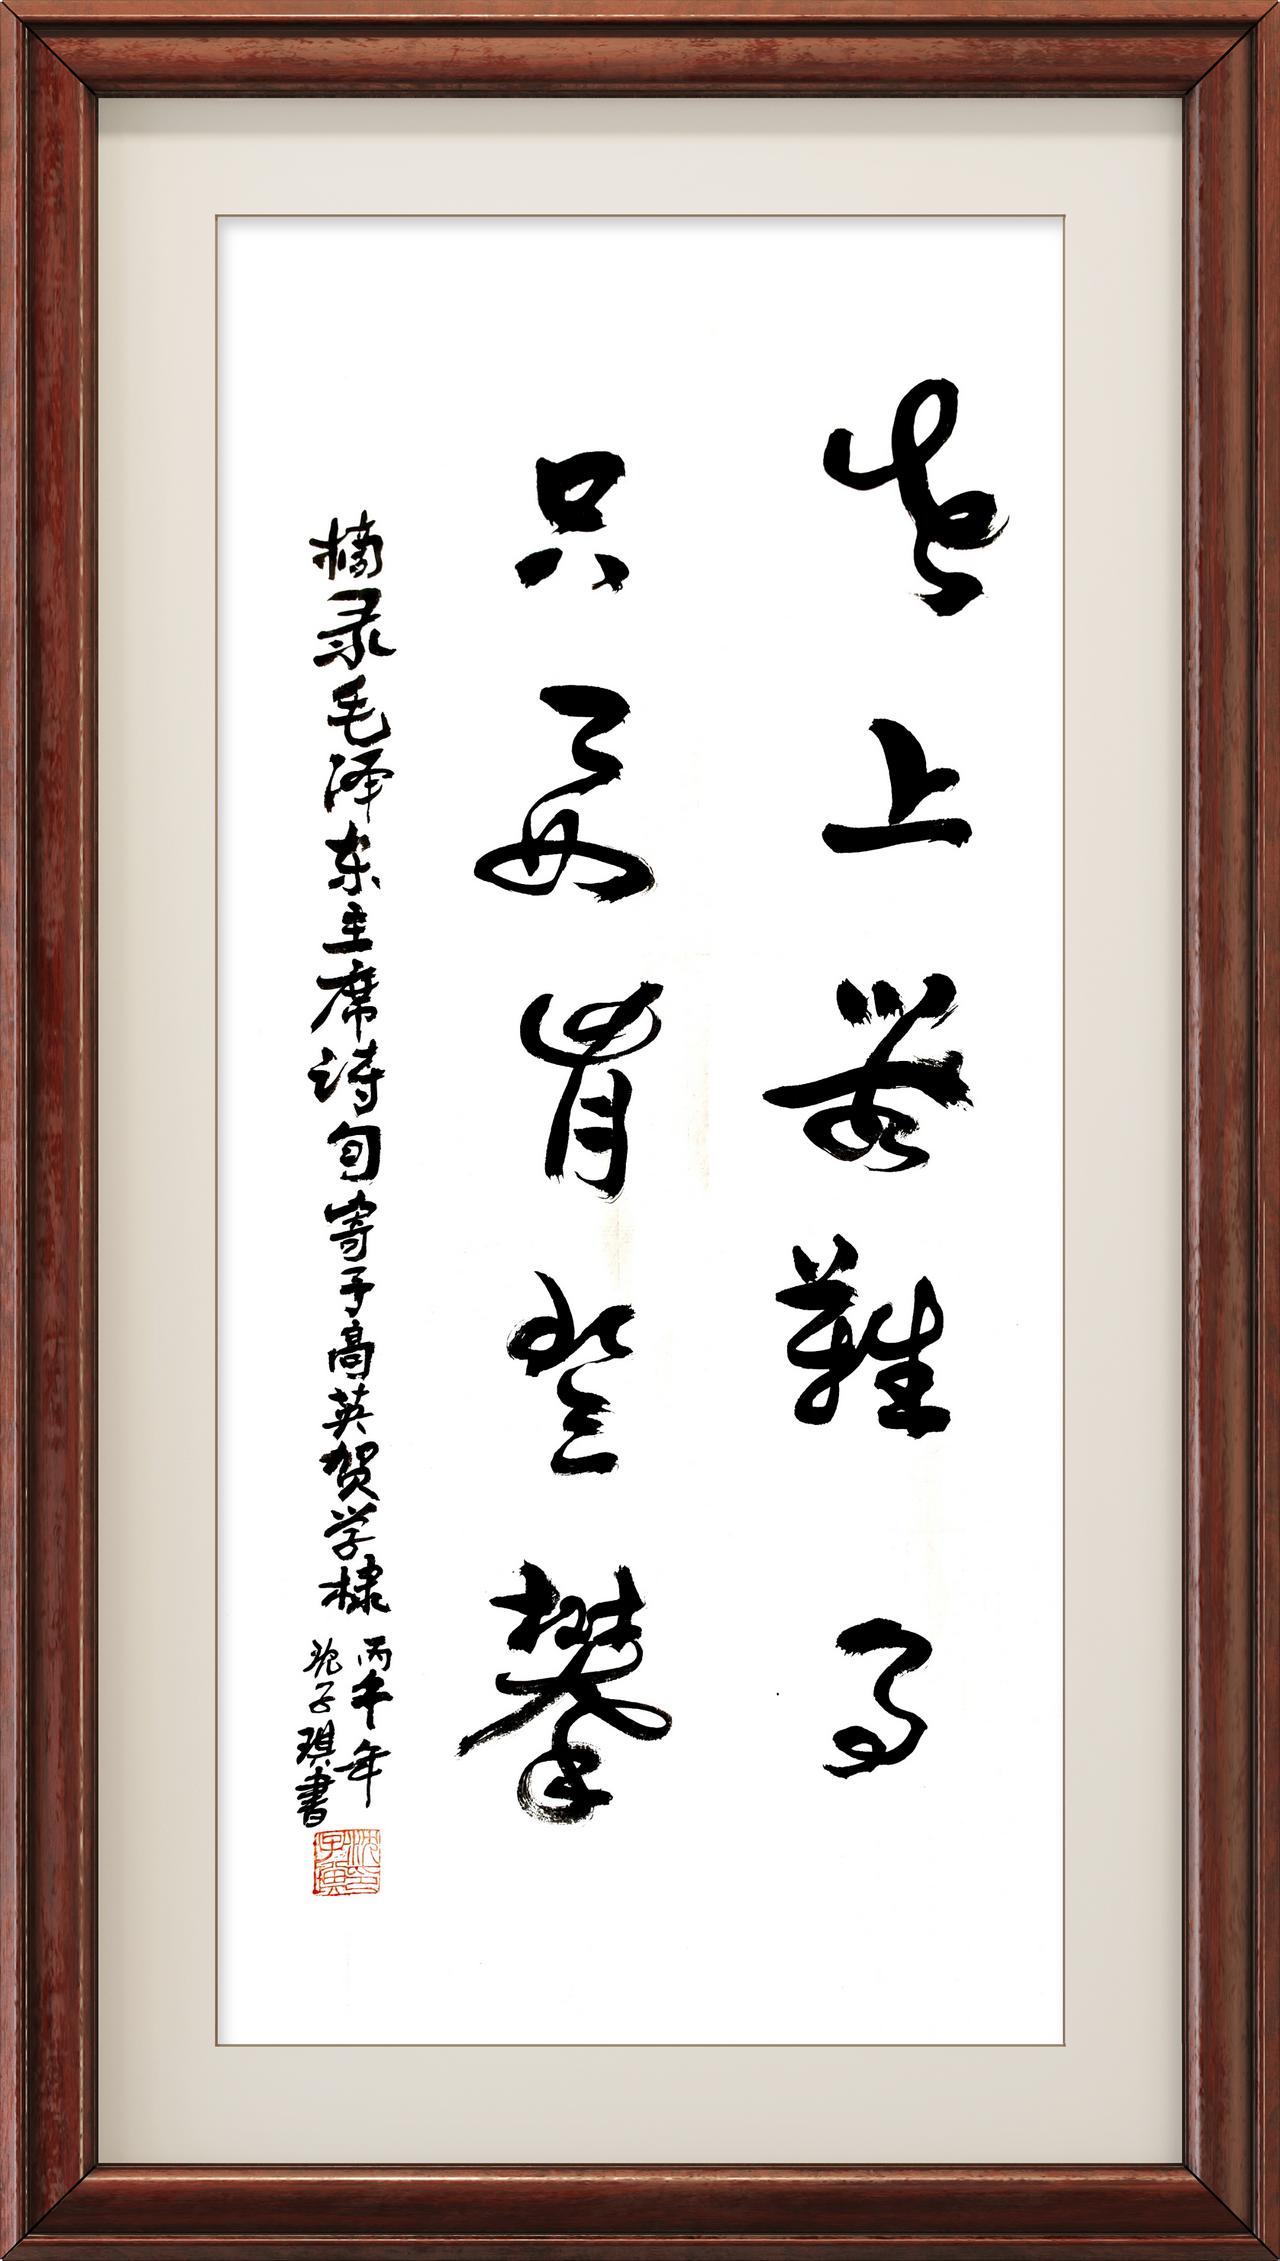 世上無難事
只要有登攀
摘录毛泽东主席诗句寄予高英贺学棣
丙午年
沈子琪書